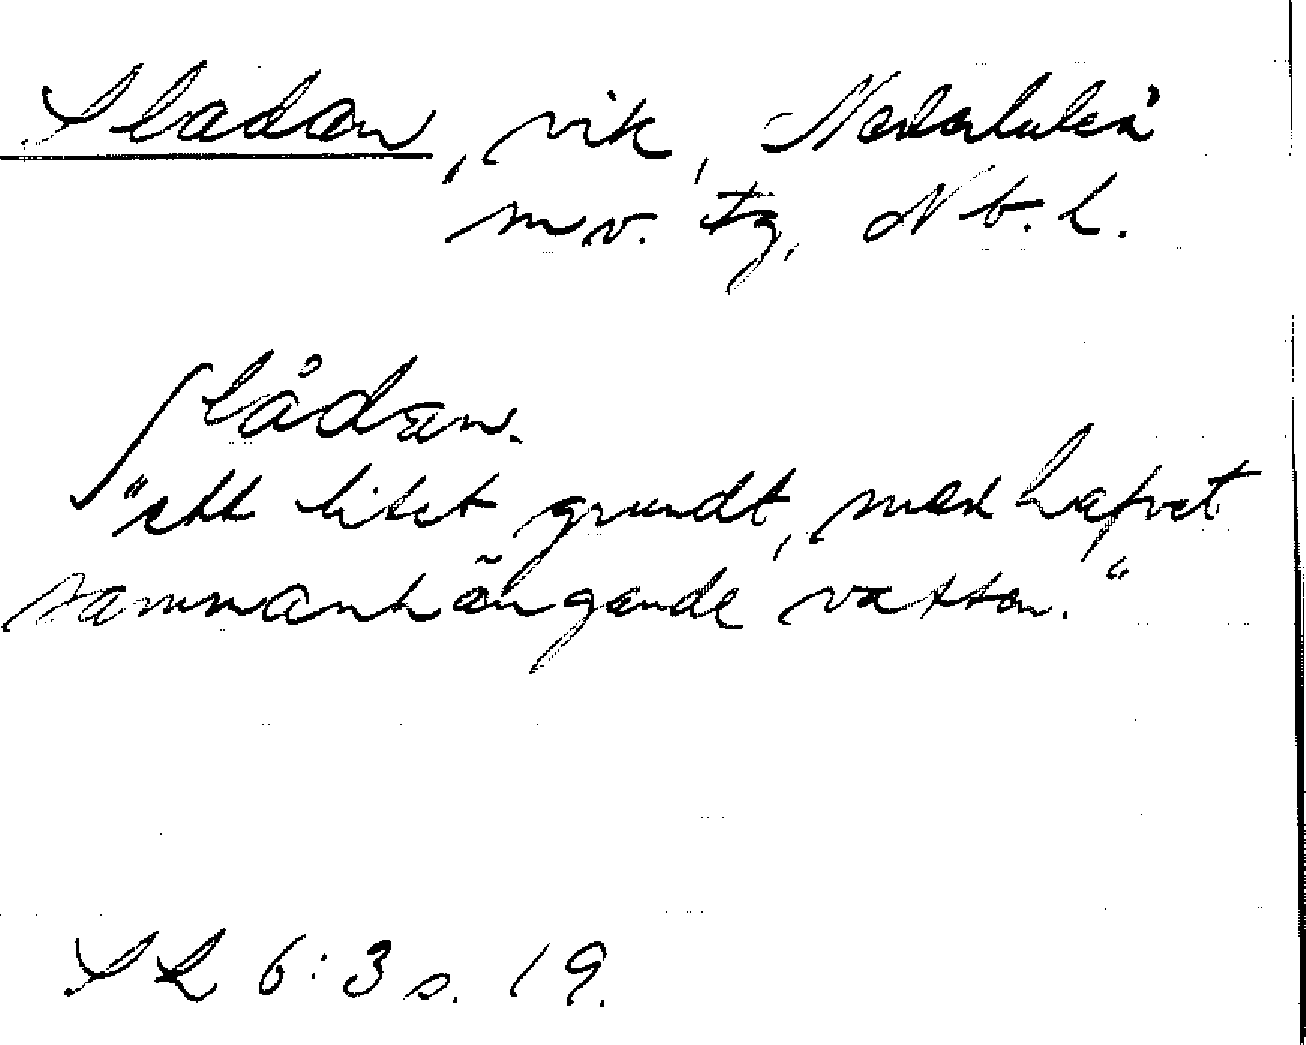 Sladan, vik, Nederluleå
mv. tg, Nb. l.
ʃlådan.
"ett litet grundt, med hafvet
sammanhängande vatten."
SL 6:3 s. 19.